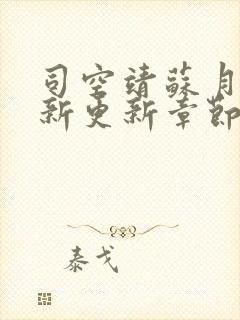 司空靖蘇月
新更新章節
泰戈